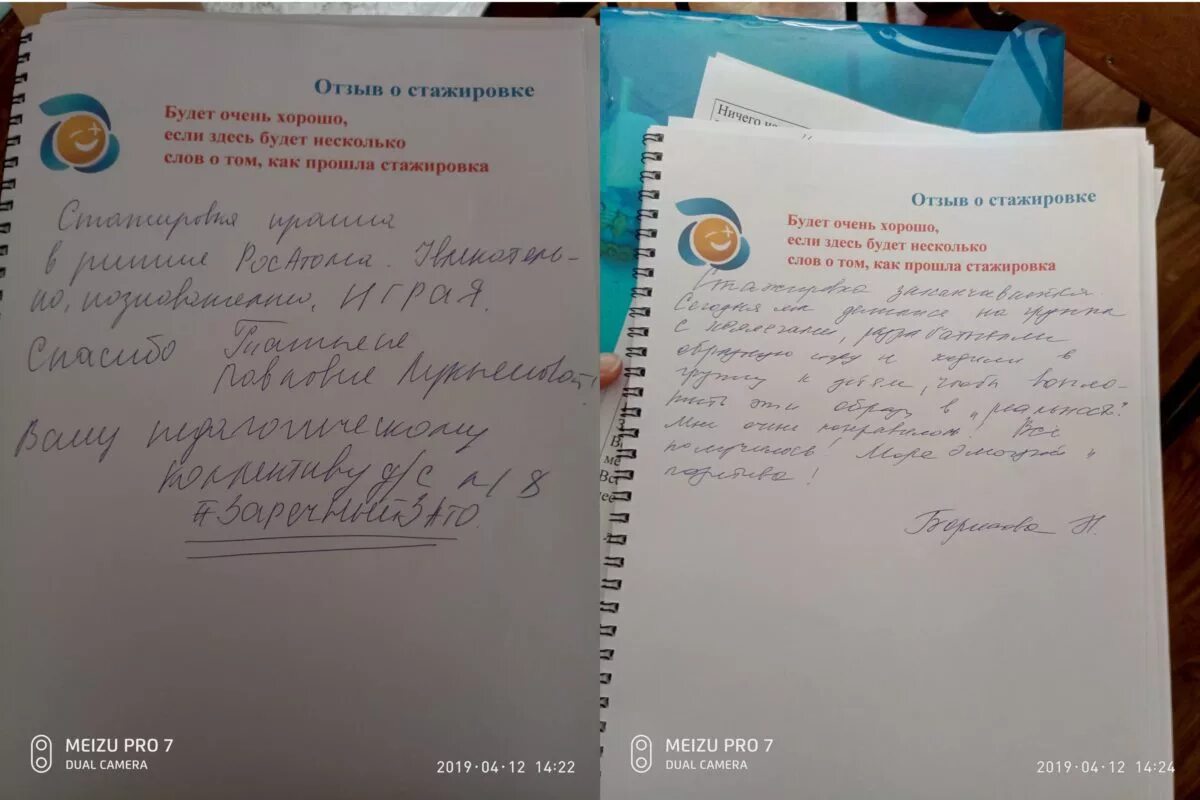 Отзыв о стажировке
Будет очень хорошо,
если здесь будет несколько
слов о том, как прошла стажировка
Стажировка прошла
в ритме РосАтома. Увлекатель-
но, познавательно, ИГРАЯ.
Спасибо Татьяне
Павловне
Вашу педагогическому
коллективу д/с № 18
#ЗаречныйЗАТО.
MEIZU PRO 7
DUAL CAMERA
2019·04·12 14:22
Ничего не
Отзыв о стажировке
Будет очень хорошо,
если здесь будет несколько
слов о том, как прошла стажировка
Стажировка заканчивается.
Сегодня мы на группы
с коллегами, разрабатывали
и ходили в
группу к детям, чтобы вопло-
тить эти образы в "реальность".
Мне очень понравилось! Все
получилось! Море эмоций и
позитива!
Н.
MEIZU PRO 7
DUAL CAMERA
2019·04·12 14:24